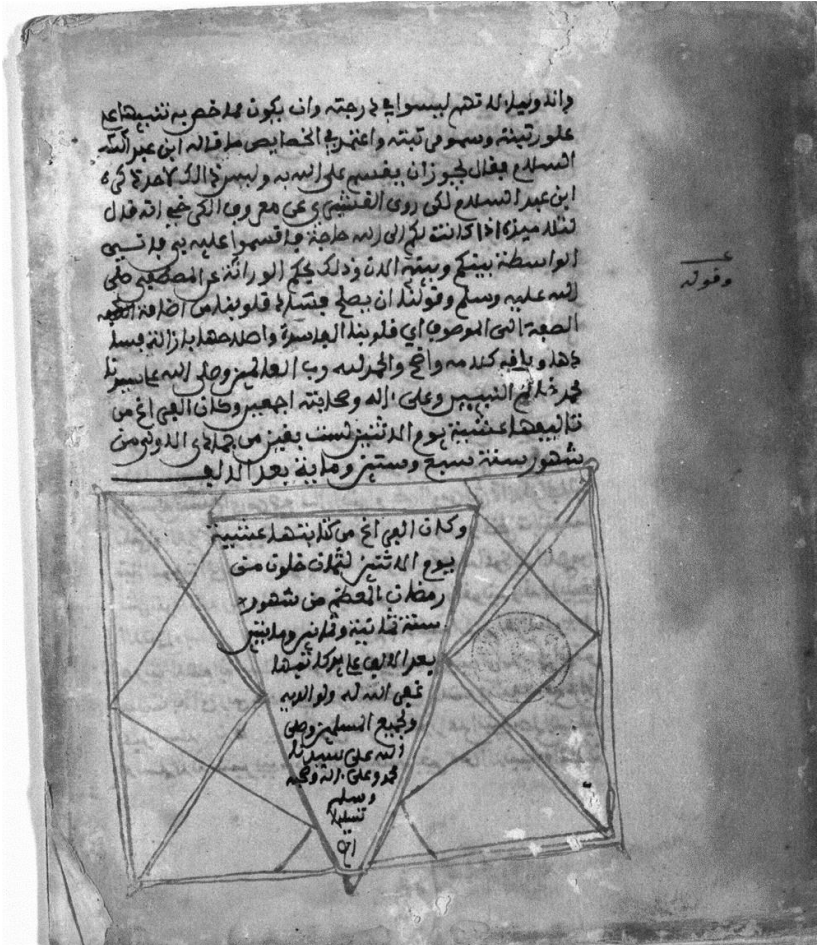 وانه وليا، لانهم ليسوا في درجته وان يكون مما خص به تنبيها على
علو رتبته وسمو مرتبته واعتمر في الخصايص ما قاله ابن عبد
السلام فقال يجوز ان يقسم على الله به وليس ذالك لاحد ذكره
ابن عبد السلام لكن روى القشيري عن معروف الكرخي انه قال
لتلاميذه اذا كانت لكم الى الله حاجة فاقسموا عليه بي فانني
الواسطة بينكم وبينه الان وذلك بحكم الوراثة عن المصطفى صلى
الله عليه وسلم وقولنا ان يصلح فساد قلوبنا من اضافة
الصفة الى الموصوف اي قلوبنا الفاسدة واصلاحها بازالة فسا
دها وباقيه كلامه واضح والحمد لله رب العالمين وصلى الله على سيدنا
محمد خاتم النبيين وعلى ءاله وصحابته اجمعين وكان الفراغ من
تاليفها عشية يوم الاثنين لست بقين من جمادى الاولى من
شهور سنة سبع وستين وماية بعد الالف
وكان الفراغ من كتابتها عشية
يوم الاثنين لثمان خلون من
رمضان المعظم من شهور
سنة ثمانية وثمانين ومايتين
بعد الالف على يد كاتبها
غفر الله له ولوالديه
ولجميع المسلمين وصلى
الله على سيدنا
محمد وعلى ءاله وصحبه
وسلم
تسليما
وقوله